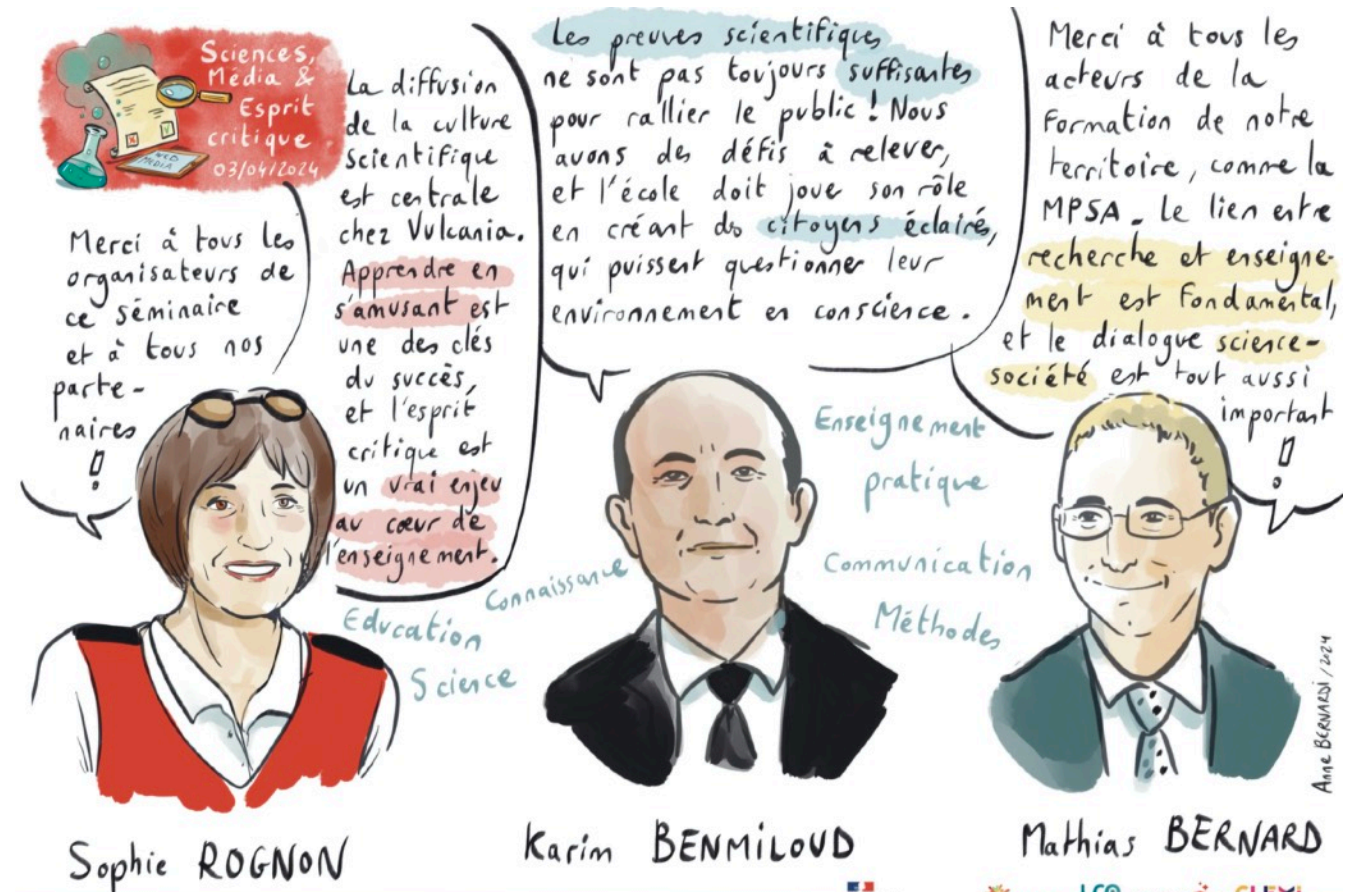 Sciences,
Média &
Esprit
critique
03/04/2024
WEB
MEDIA
Merci à tous les
organisateurs de
ce séminaire
et à tous nos
parte-
naires
!
La diffusion
de la culture
scientifique
est centrale
chez Vulcania.
Apprendre en
s'amusant est
une des clés
du succès,
et l'esprit
critique est
un vrai enjeu
au cœur de
l'enseignement.
Les preuves scientifiques
ne sont pas toujours suffisantes
pour rallier le public ! Nous
avons des défis à relever,
et l'école doit joue son rôle
en créant des citoyens éclairés,
qui puissent questionner leur
environnement en conscience.
Merci à tous les
acteurs de la
formation de notre
territoire, comme la
MPSA. Le lien entre
recherche et enseigne-
ment est fondamental,
et le dialogue science-
société est tout aussi
important
!
Education
Science
Connaissance
Enseignement
pratique
Communication
Méthodes
Anne BERNARDI / 2024
Sophie ROGNON
Karim BENMILOUD
Mathias BERNARD